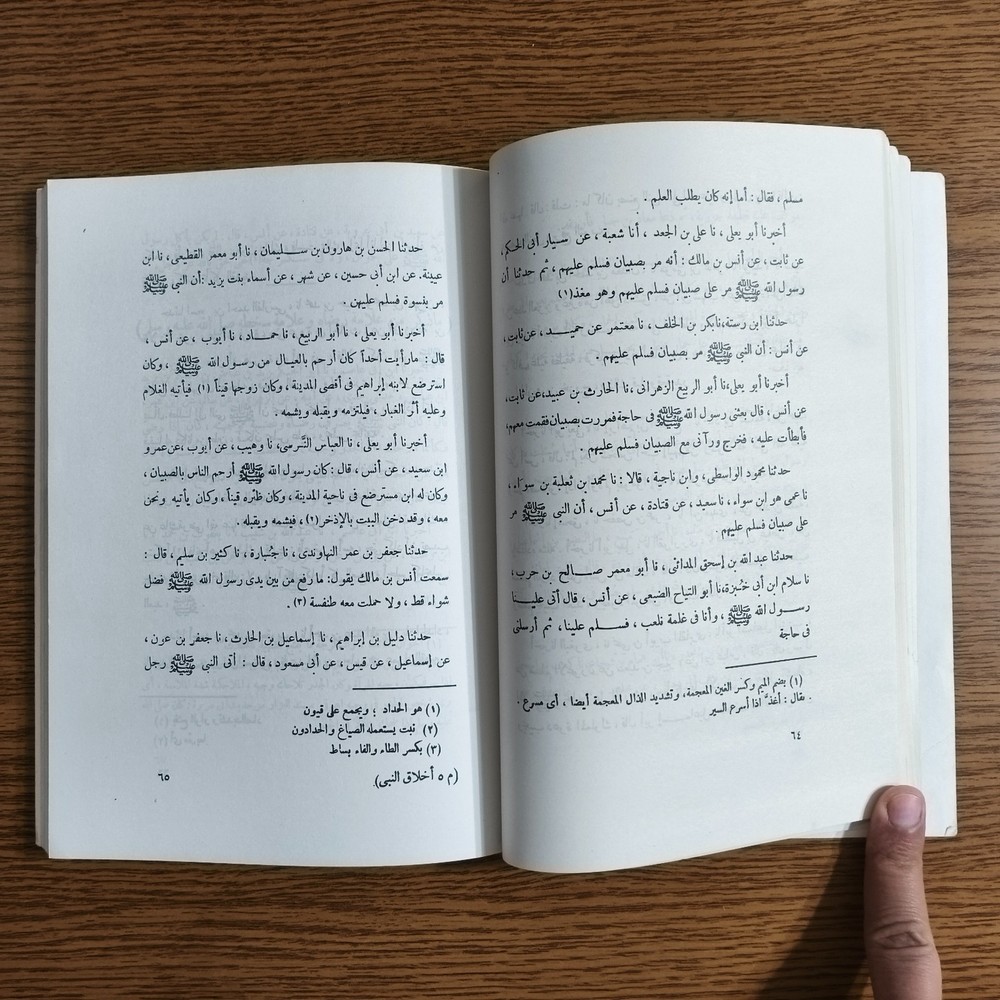 مسلم ، فقال : أما إنه كان يطلب العلم .
أخبرنا أبو يعلى ، نا على بن الجعد ، أنا شعبة ، عن سيار أبى الحكم ،
عن ثابت ، عن أنس بن مالك : أنه مر بصبيان فسلم عليهم ، ثم حدثنا أن
رسول الله ﷺ مر على صبيان فسلم عليهم وهو مغذ(١)
حدثنا ابن رستة،نابكر بن الخلف ، نا معتمر عن حميـد ، عن ثابت ،
عن أنس : أن النبى ﷺ مر بصبيان فسلم عليهم .
أخبرنا أبو يعلى،نا أبو الربيع الزهرانى،نا الحارث بن عبيد،عن ثابت،
عن أنس ، قال بعثنى رسول الله ﷺ فى حاجة فمررت بصبيان فقمت معهم،
فأبطأت عليه ، فخرج ورآنى مع الصبيان فسلم عليهم .
حدثنا محمود الواسطى، وابن ناجية ، قالا : نا محمد بن ثعلبة بن سواء ،
نا عمى هو ابن سواء ، نا سعيد ، عن قتادة ، عن أنس ، أن النبى ﷺ مر
على صبيان فسلم عليهم .
حدثنا عبد الله بن إسحق المدائنى ، نا أبو معمر صــالح بن حرب ،
نا سلام ابن أبى خُبزة،نا أبو التياح الضبعى ، عن أنس ، قال أتى علينـا
رسـول الله ﷺ ، وأنا فى غلمة نلعب ، فســلم علينا ، ثم أرسلنى
فى حاجة
(١) بضم الميم وكسر الغين المعجمة، وتشديد الذال المعجمة أيضا ، أى مسرع .
يقال : أغذَّ اذا أسرع السير
٦٤
حدثنا الحسن بن هارون بن ســليمان، نا أبو معمر القطيعى ، نا ابن
عيينة. عن ابن أبى حسين ، عن شهر ، عن أسماء بنت يزيد :أن النبى ﷺ
مر بنسوة فسلم عليهن .
أخبرنا أبو يعلى ، نا أبو الربيع ، نا حمـاد ، نا أيوب ، عن أنس ،
قال : مارأيت أحداً كان أرحم بالعيـال من رسول الله ﷺ ، وكان
استرضع لابنه إبراهيم فى أقصى المدينة ، وكان زوجها قيناً (١) فيأتيه الغلام
وعليه أثر الغبار ، فيلتزمه ويقبله ويشمه .
أخبرنا أبو يعلى ، نا العباس النَّرسى، نا وهيب ، عن أيوب ،عن عمرو
ابن سعيد ، عن أنس ، قال : كان رسول الله ﷺ أرحم الناس بالصبيان ،
وكان له ابن مسترضع فى ناحية المدينة ، وكان ظئره قيناً ، وكان يأتيه ونحن
معه ، وقد دخن البيت بالإذخر(٢) ، فيشمه ويقبله .
حدثنا جعفر بن عمر النهاوندى ، نا جُبارة ، نا كثير بن سليم ، قال :
سمعت أنس بن مالك يقول: ما رفع من بين يدى رسول الله ﷺ فضل
شواء قط ، ولا حملت معه طنفسة (٣) .
حدثنا دليل بن إبراهيم ، نا إسماعيل بن الحارث ، نا جعفر بن عون ،
عن إسماعيل ، عن قيس ، عن أبى مسعود ، قال : أتى النبى ﷺ رجل
(١) هو الحداد ؛ ويجمع على قيون
(٢) نبت يستعمله الصياغ والحدادون
(٣) بكسر الطاء والفاء بساط
(م ٥ أخلاق النبى)
٦٥